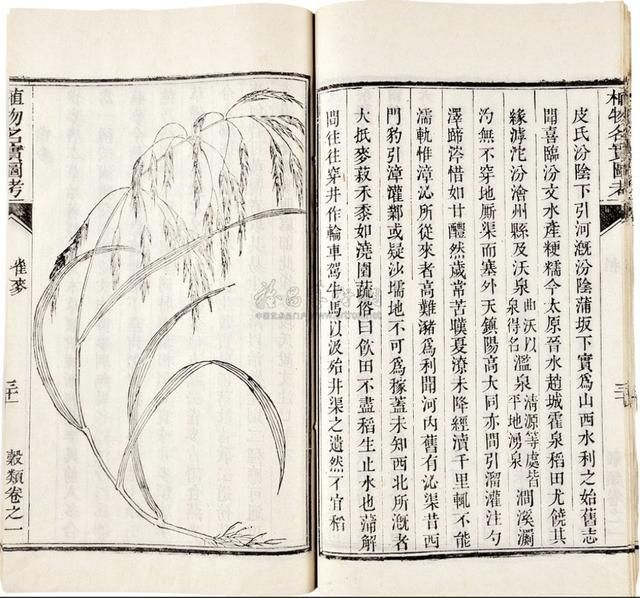 植物名實圖考
皮氏汾陰下引河漑汾陰蒲坂下實爲山西水利之始舊志
聞喜臨汾文水產粳糯今太原晉水趙城霍泉稻田尤饒其
緣滹沱汾澮州縣及沃泉曲沃以泉得名濫泉清源等處皆平地湧泉澗溪瀾
汋無不穿地厮渠而塞外天鎮陽高大同亦間引溜灌注勺
澤蹄涔惜如甘醴然歲常苦嘆夏潦未降經瀆千里輒不能
濡軌惟漳沁所從來者高難瀦爲利聞河內舊有沁渠昔西
門豹引漳灌鄴或疑沙壖地不可爲稼蓋未知西北所漑者
大扺麥菽禾黍如澆園蔬俗曰飲田不盡稻生止水也蒲解
間往往穿井作輪車駕牛馬以汲殆井渠之遺然不宜稻
植物名實圖考
雀麥
穀類卷之一